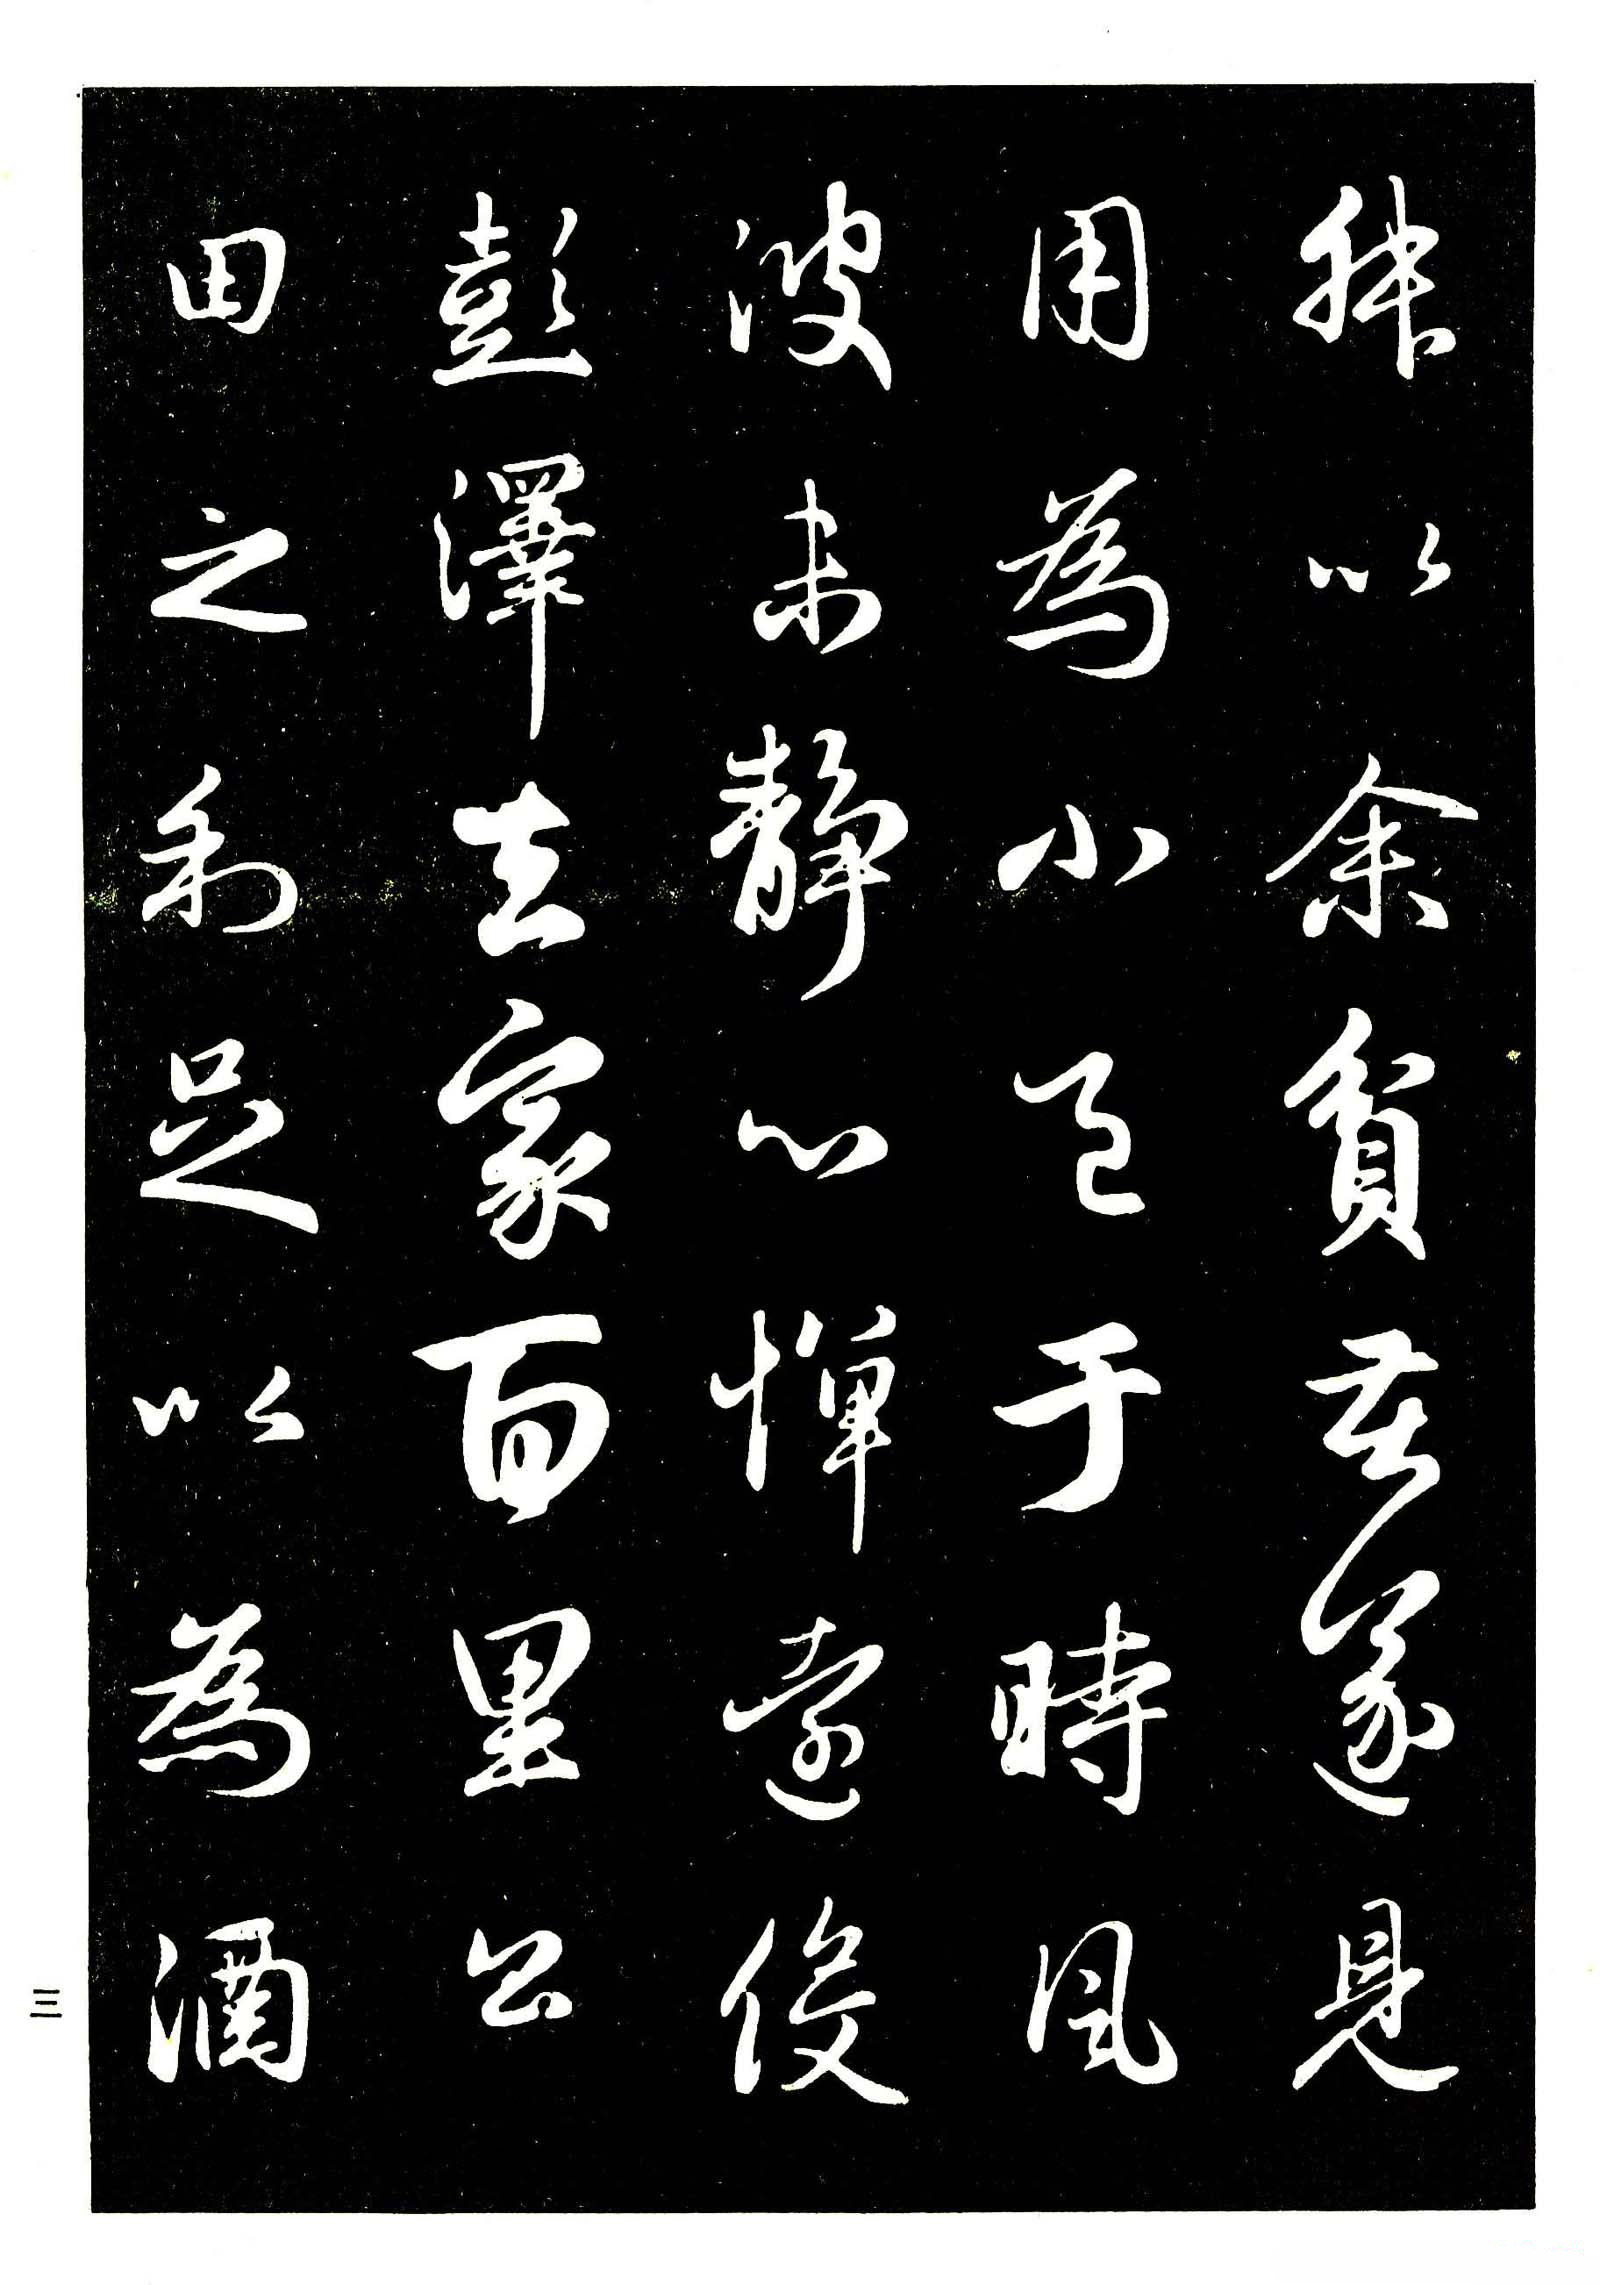 叔以余貧苦遂見
用為小邑于時風
波未静心憚遠役
彭澤去家百里公
田之利足以為酒
三